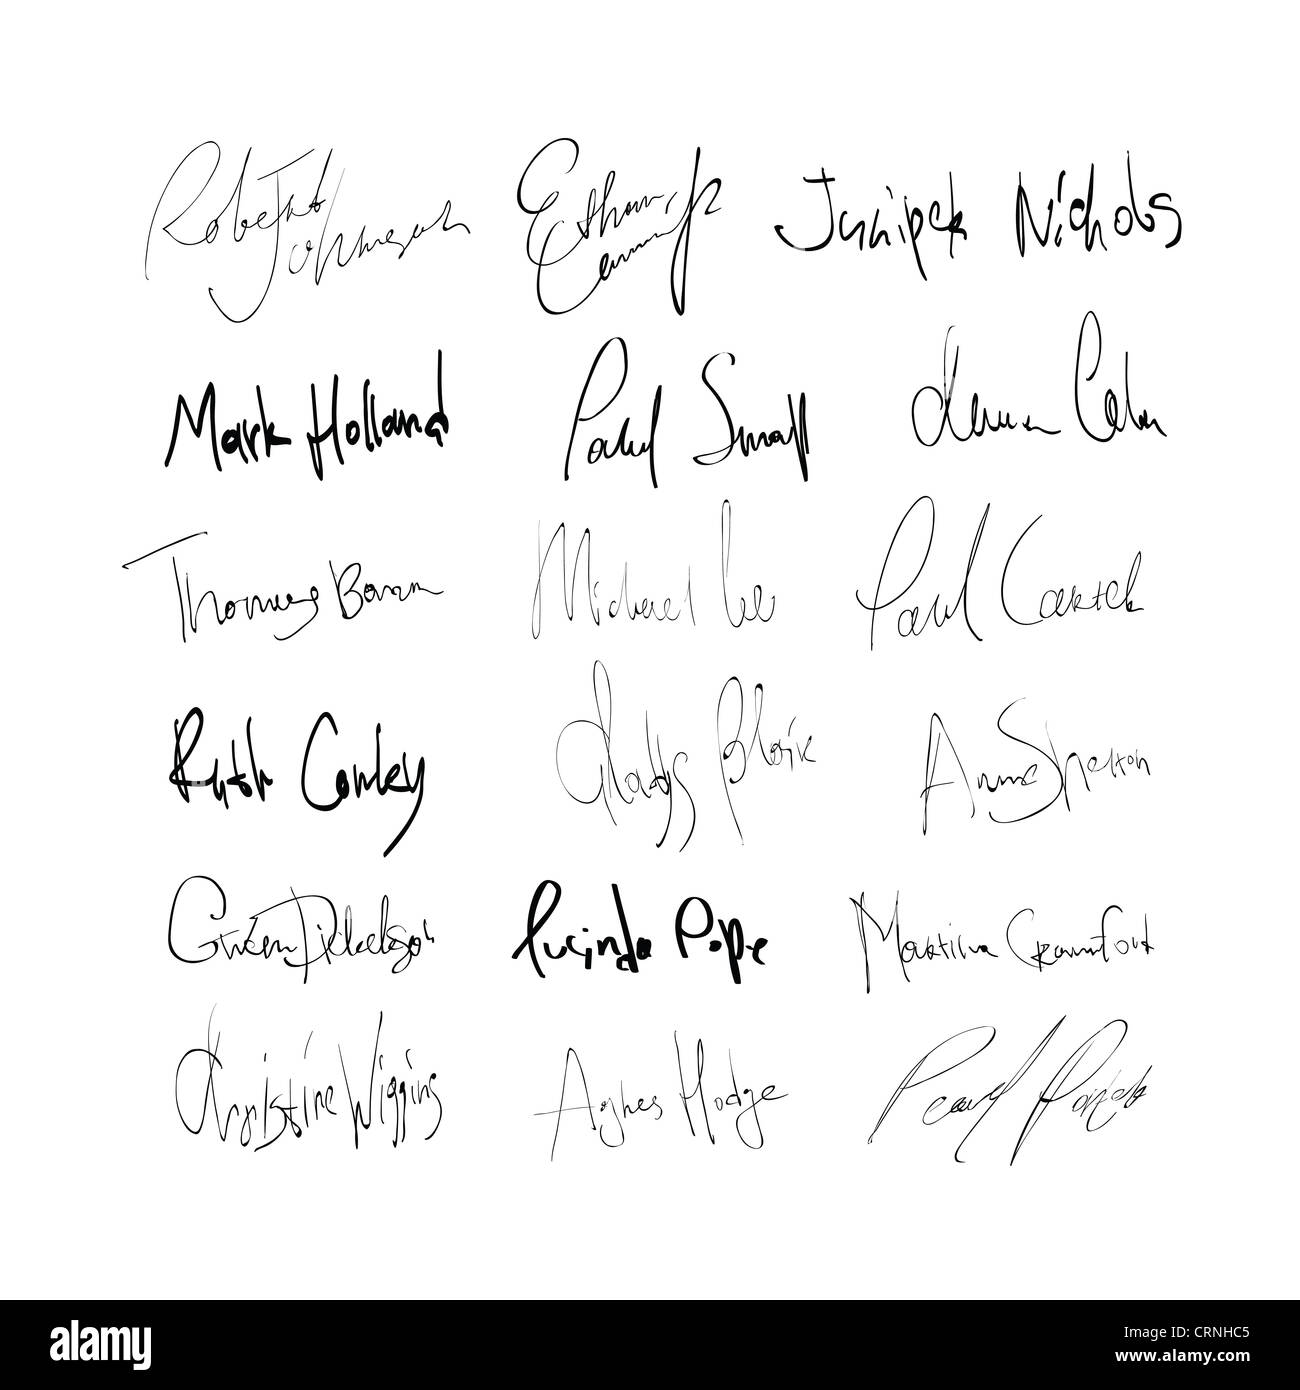 Robert Johnson
Ethan
Juniper Nichols
Mark Holland
Paul Small
Thomas
Michael Lee
Paul Carter
Ruth Conley
Gladys Blair
Anne Shelton
Gwen Dickerson
Lucinda Pope
Martina Crawford
Christine Wiggins
Agnes Hodge
Pearl Porter
alamy
Image ID: CRNHC5
www.alamy.com